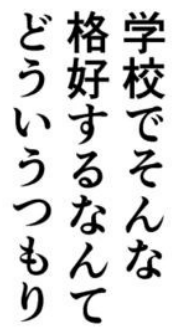 学校でそんな
格好するなんて
どういうつもり